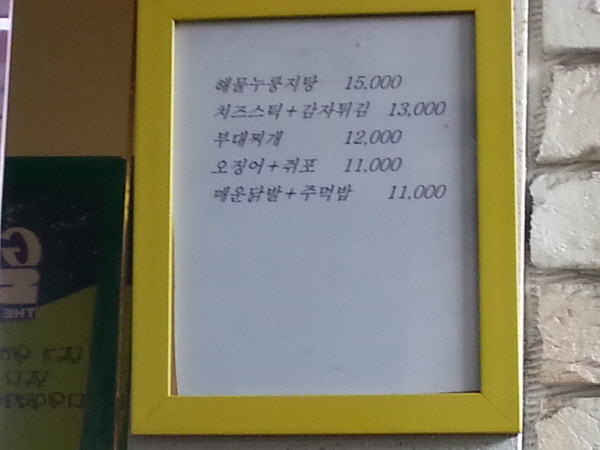 해물누룽지탕 15,000
치즈스틱+감자튀김 13,000
부대찌개 12,000
오징어+쥐포 11,000
매운닭발+주먹밥 11,000
THE